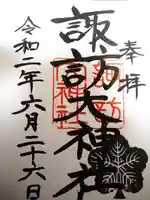 奉拝
諏訪大神社
諏訪神社
令和二年六月二十六日